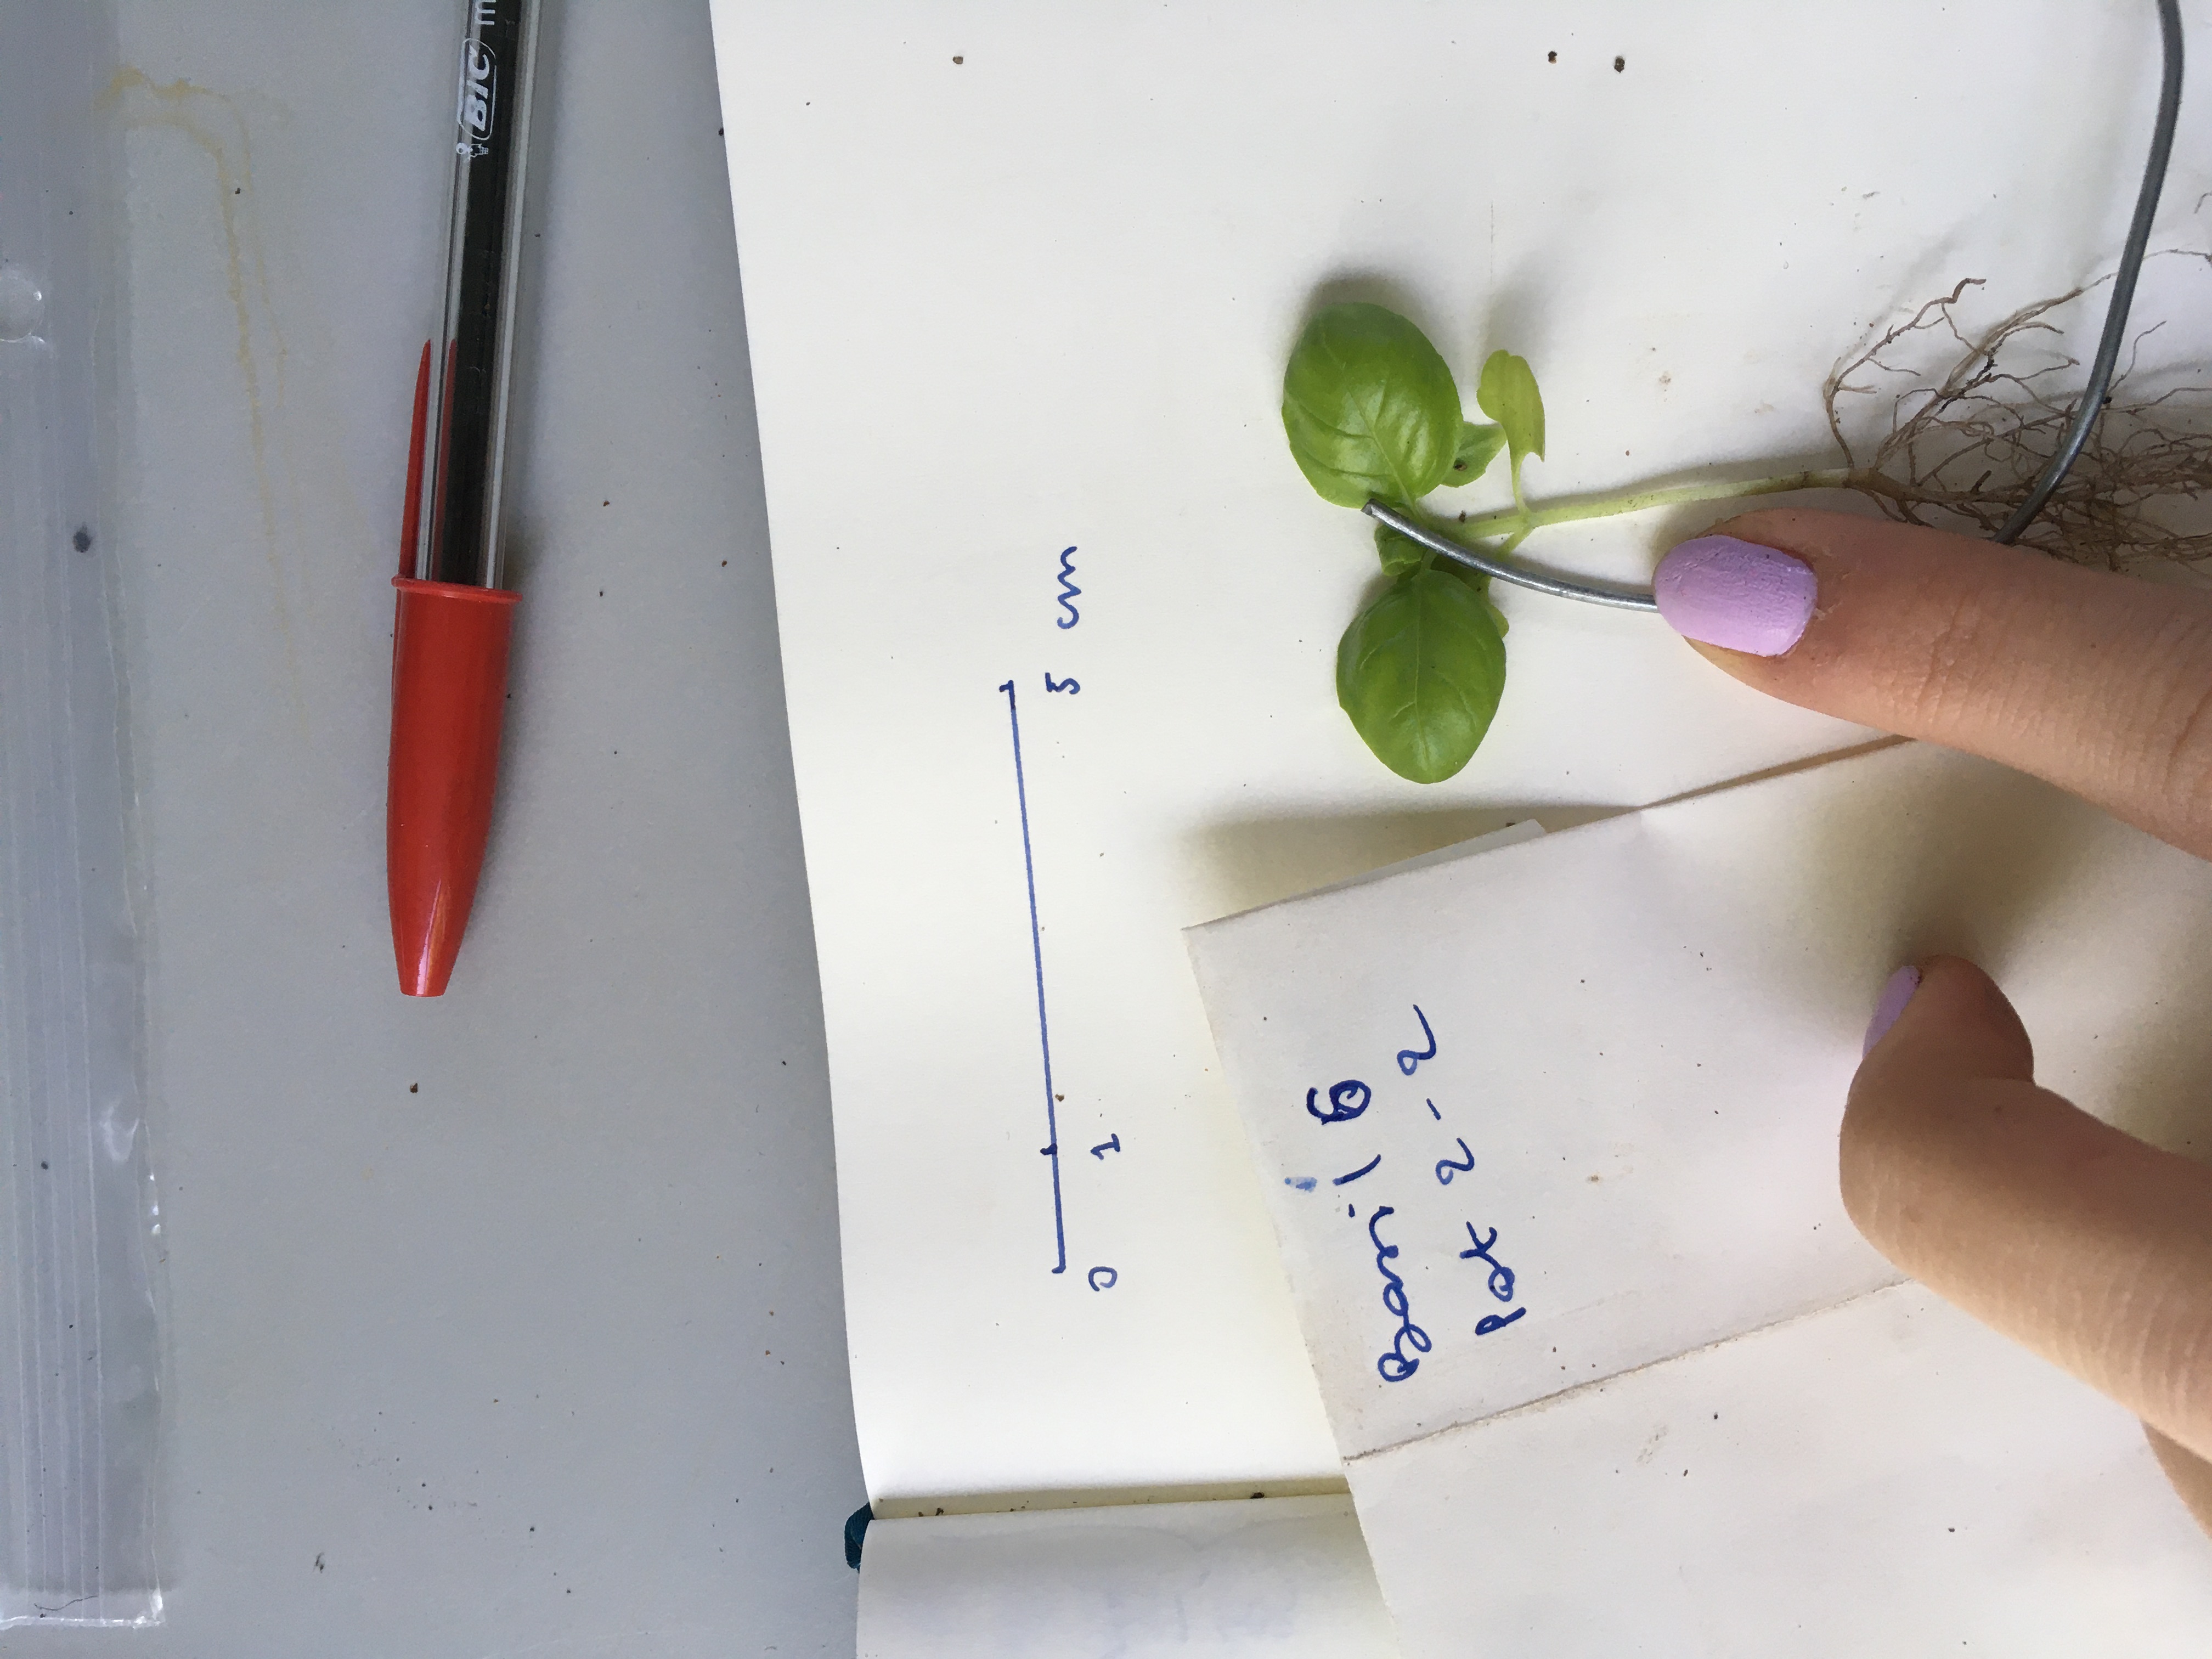 BIC
0 1 5 cm
Basil 6
Pot 2-2